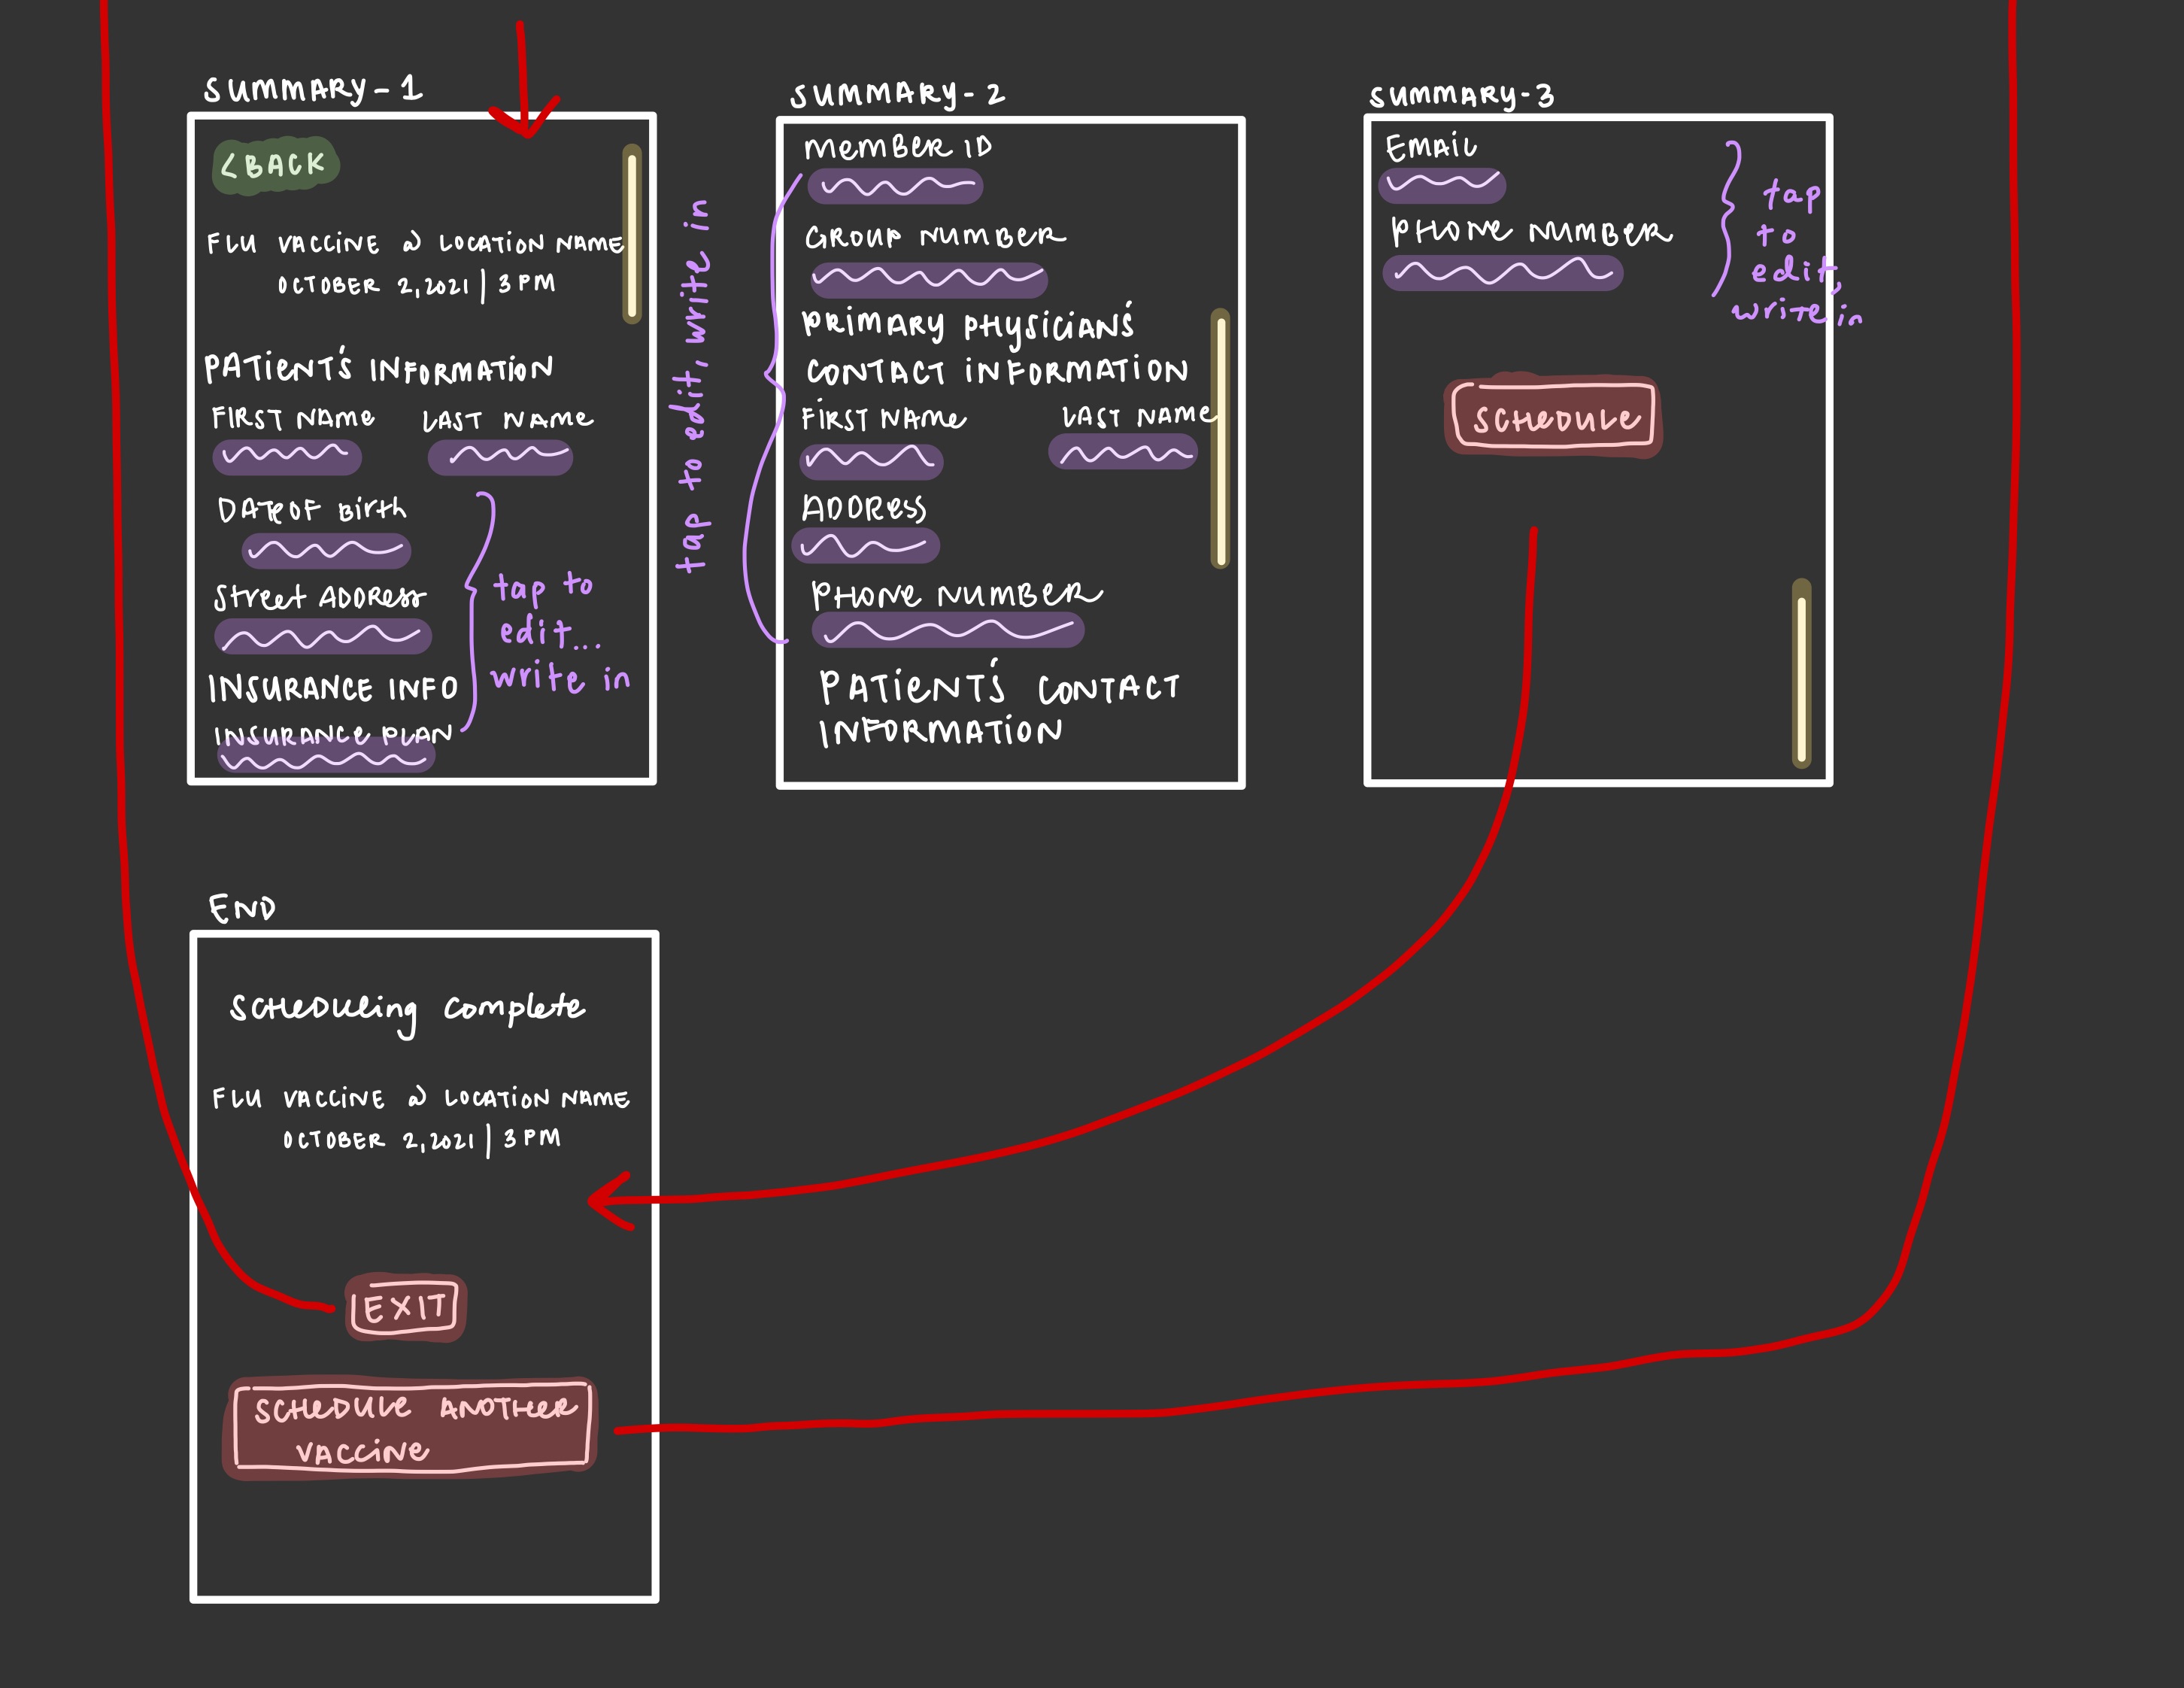 SUMMARY-1
< BACK
FLU VACCINE @ LOCATION NAME
OCTOBER 2, 2021 | 3 PM
PATIENT'S INFORMATION
FIRST NAME LAST NAME
DATE OF BIRTH
STREET ADDRESS
INSURANCE INFO
INSURANCE PLAN
tap to
edit...
write in
tap to edit, write in
SUMMARY-2
MEMBER ID
GROUP NUMBER
PRIMARY PHYSICIAN'S
CONTACT INFORMATION
FIRST NAME LAST NAME
ADDRESS
PHONE NUMBER
PATIENT'S CONTACT
INFORMATION
SUMMARY-3
EMAIL
PHONE NUMBER
tap
to
edit,
write in
SCHEDULE
END
SCHEDULING COMPLETE
FLU VACCINE @ LOCATION NAME
OCTOBER 2, 2021 | 3 PM
EXIT
SCHEDULE ANOTHER
VACCINE